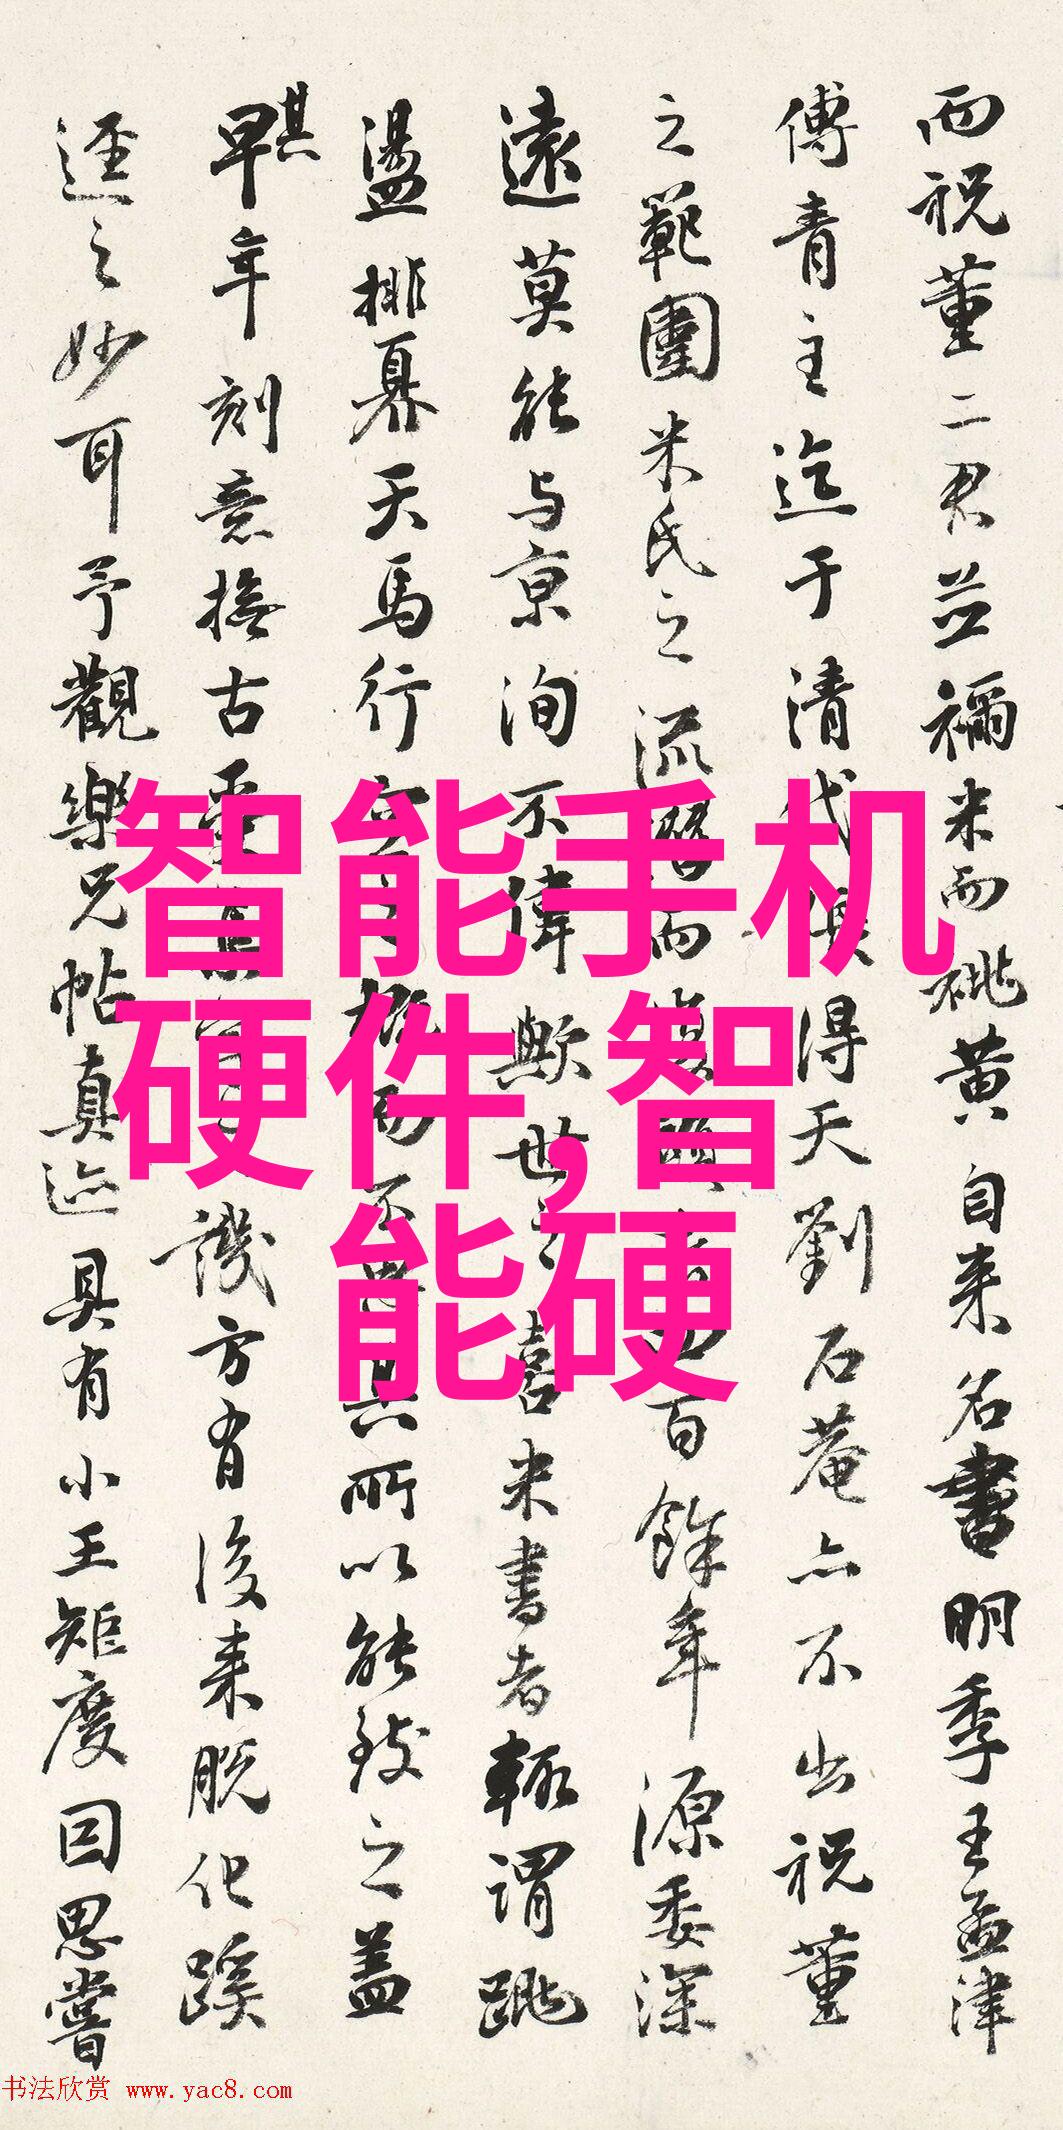 而祝董二君並禰米而祧黄自来名書明季王孟津
傅青主迄于清代 得天劉石菴亦不出祝董
之範圍米氏之流 而 百餘年源委深
遠莫能与京洵不偉歟世之喜米書者輒謂跳
盪排奡天馬行 不 其所以能致之盖
其早年刻意撫古 譏方有後来脱化蹊
迳之妙耳予觀樂兄帖真迹具有小王矩度因思嘗
智能手机
硬件,智
能硬
书法欣赏 www.yac8.com